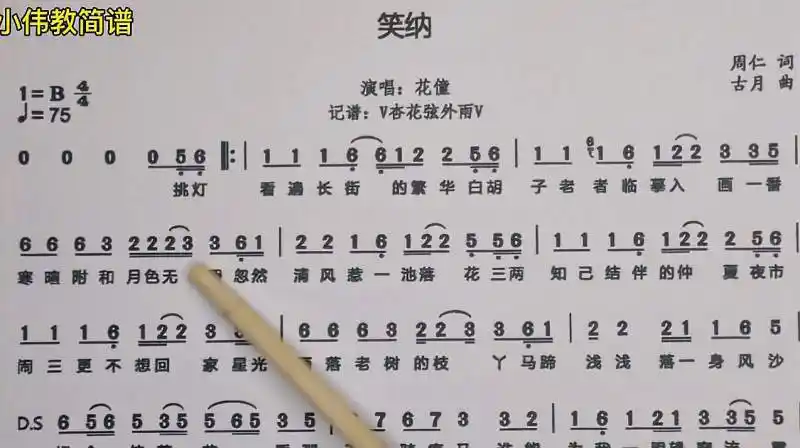 小伟教简谱
笑纳
周仁 词
1=B 4/4
演唱：花僮
古月 曲
♩=75
记谱：V杏花弦外雨V
0 0 0 0 5 6 |: 1 1 1 6 6 1 2 2 5 5 6 | 1 1 6 1 6 1 2 2 3 3 5
挑灯 看遍长街 的繁华白胡 子老者临摹入 画一番
6 6 6 3 2 2 2 3 3 6 1 | 2 2 1 6 1 2 2 5 5 6 | 1 1 1 6 1 2 2 2 5 6
寒暄附和月色无 忽然 清风惹一池落 花三两 知己结伴的仲 夏夜市
1 1 1 6 1 2 2 3 3 2 2 3 3 6 1 | 2 2 1 6 1 1
周三更不想回 家星光 落老树的枝 丫马蹄 浅浅 落一身风沙
D.S 6 5 6 5 3 5 6 5 3 5 7 6 7 3 3 2 1 1 6 1 2 3 5